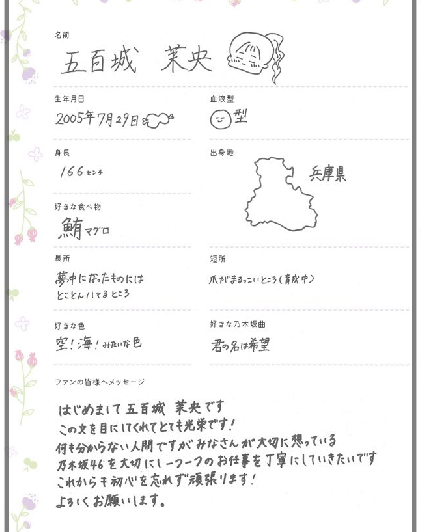 名前
五百城 茉央
生年月日
2005年7月29日
血液型
型
身長
166センチ
出身地
兵庫県
好きな食べ物
鮪マグロ
長所
夢中になったものには
とことんハマるところ
短所
爪がまるっこいところ(育成中)
好きな色
空!海!みたいな色
好きな乃木坂曲
君の名は希望
ファンの皆様へメッセージ
はじめまして五百城 茉央です
この文を目にしてくれてとても光栄です!
何も分からない人間ですがみなさんが大切に想っている
乃木坂46を大切に一つ一つのお仕事を丁寧にしていきたいです
これからも初心を忘れず頑張ります!
よろしくお願いします。